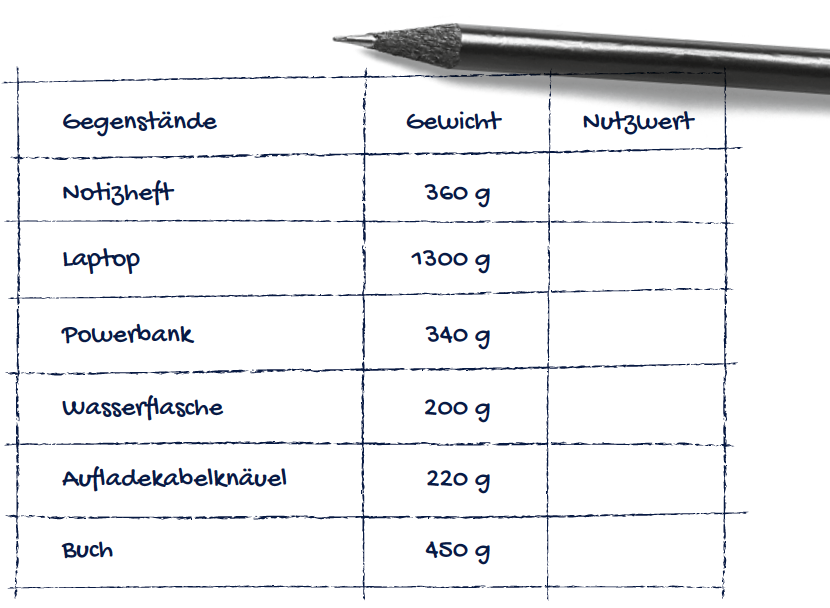 Gegenstände Gewicht Nutzwert
Notizheft 360 g
Laptop 1300 g
Powerbank 340 g
Wasserflasche 200 g
Aufladekabelknäuel 220 g
Buch 450 g